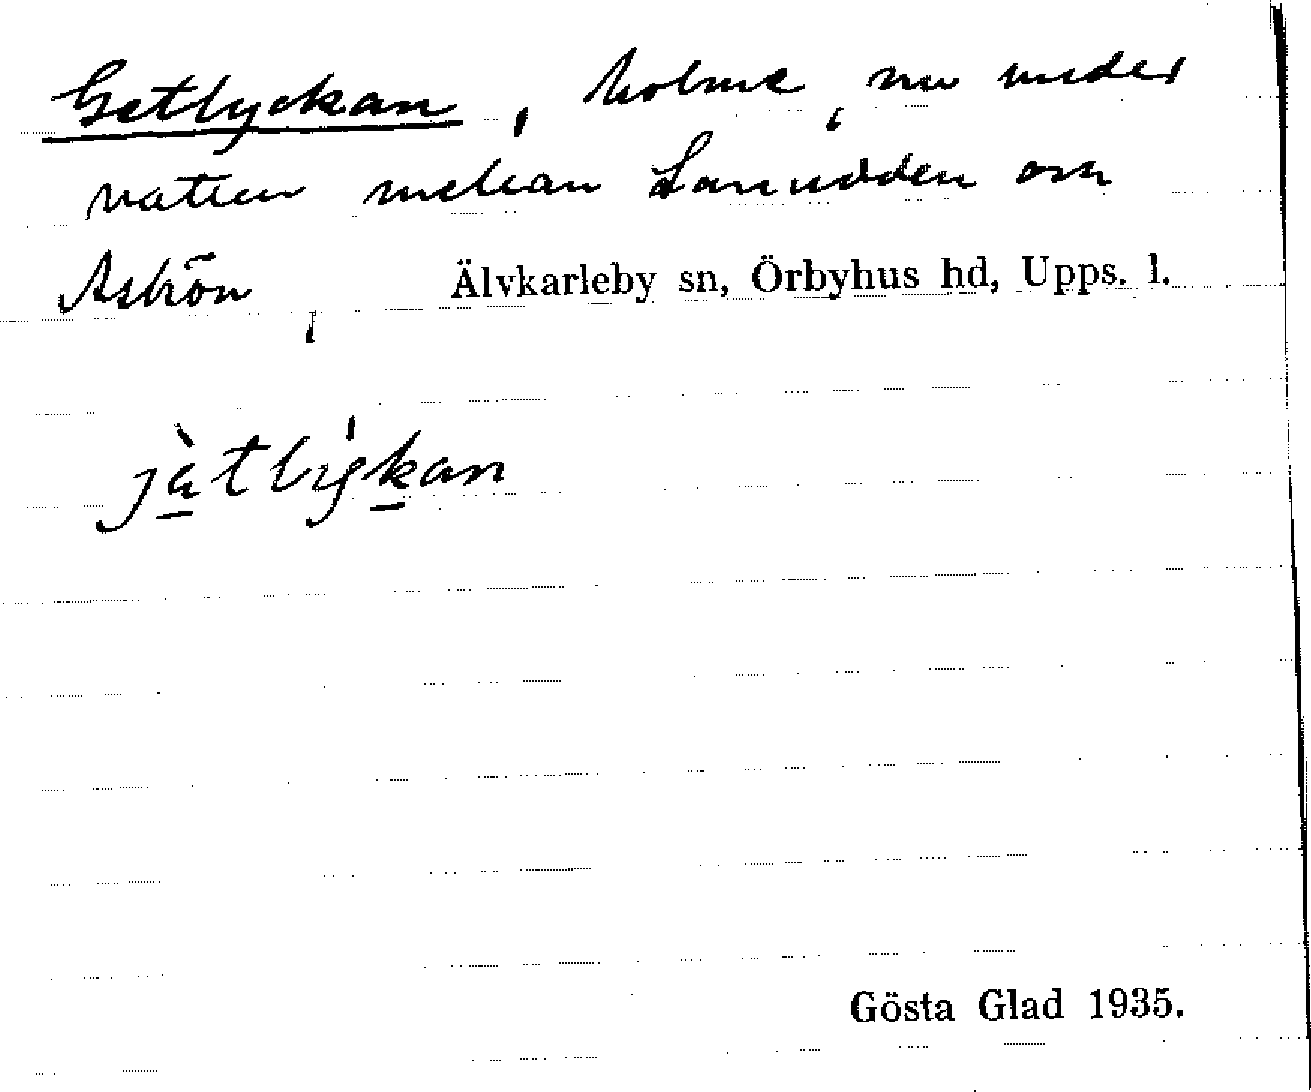 Getlyckan, holme, nu under
vatten mellan Lanudden och
Aströn, Älvkarleby sn, Örbyhus hd, Upps. l.
jä̀tlýkan
Gösta Glad 1935.